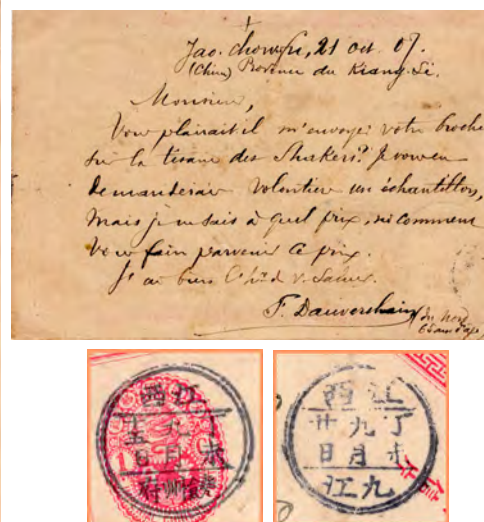 Jao. chowfu, 21 oct. 07.
(China) Province du Kiang-Si.
Monsieur,
Vous plairait-il m'envoyer votre broche
sur la tisane des Shakers? Je vous en
demanderais volontiers un échantillon,
mais je ne sais à quel prix, ni comment
vous faire parvenir ce prix.
J'ai bien l' d v. saluer.
du Nord
江西
州府
江西
丁未九月廿日
九江